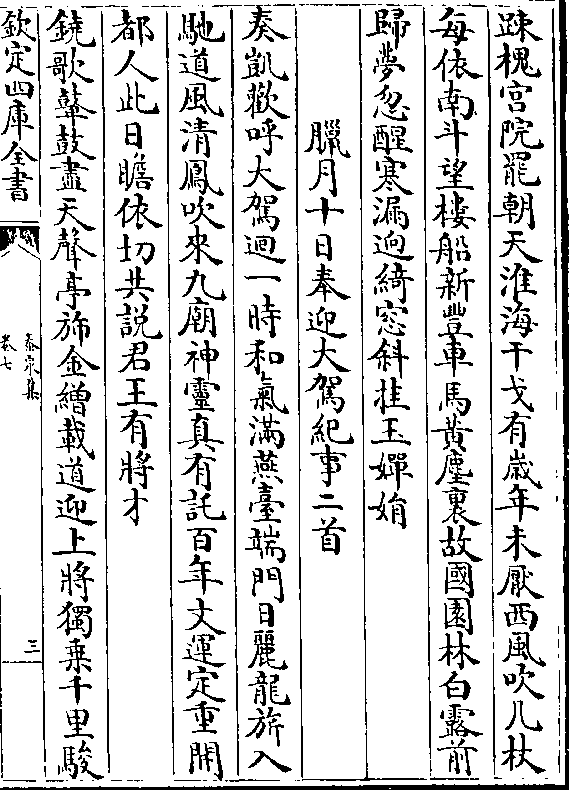 踈槐宫院罷朝天淮海干戈有嵗年未厭西風吹几杖
每依南斗望樓船新豐車馬黄塵裏故國園林白露前
歸夢忽醒寒漏逈綺窓斜挂玉嬋娟
臘月十日奉迎大駕紀事二首
奏凱歡呼大駕迴一時和氣滿燕臺端門日麗龍旂入
馳道風清鳳吹來九廟神靈真有託百年文運定重開
都人此日瞻依切共説君王有將才
鐃歌鼙鼓盡天聲亭斾金繒載道迎上將獨乗千里駿
欽定四庫全書
泰泉集
卷七
三